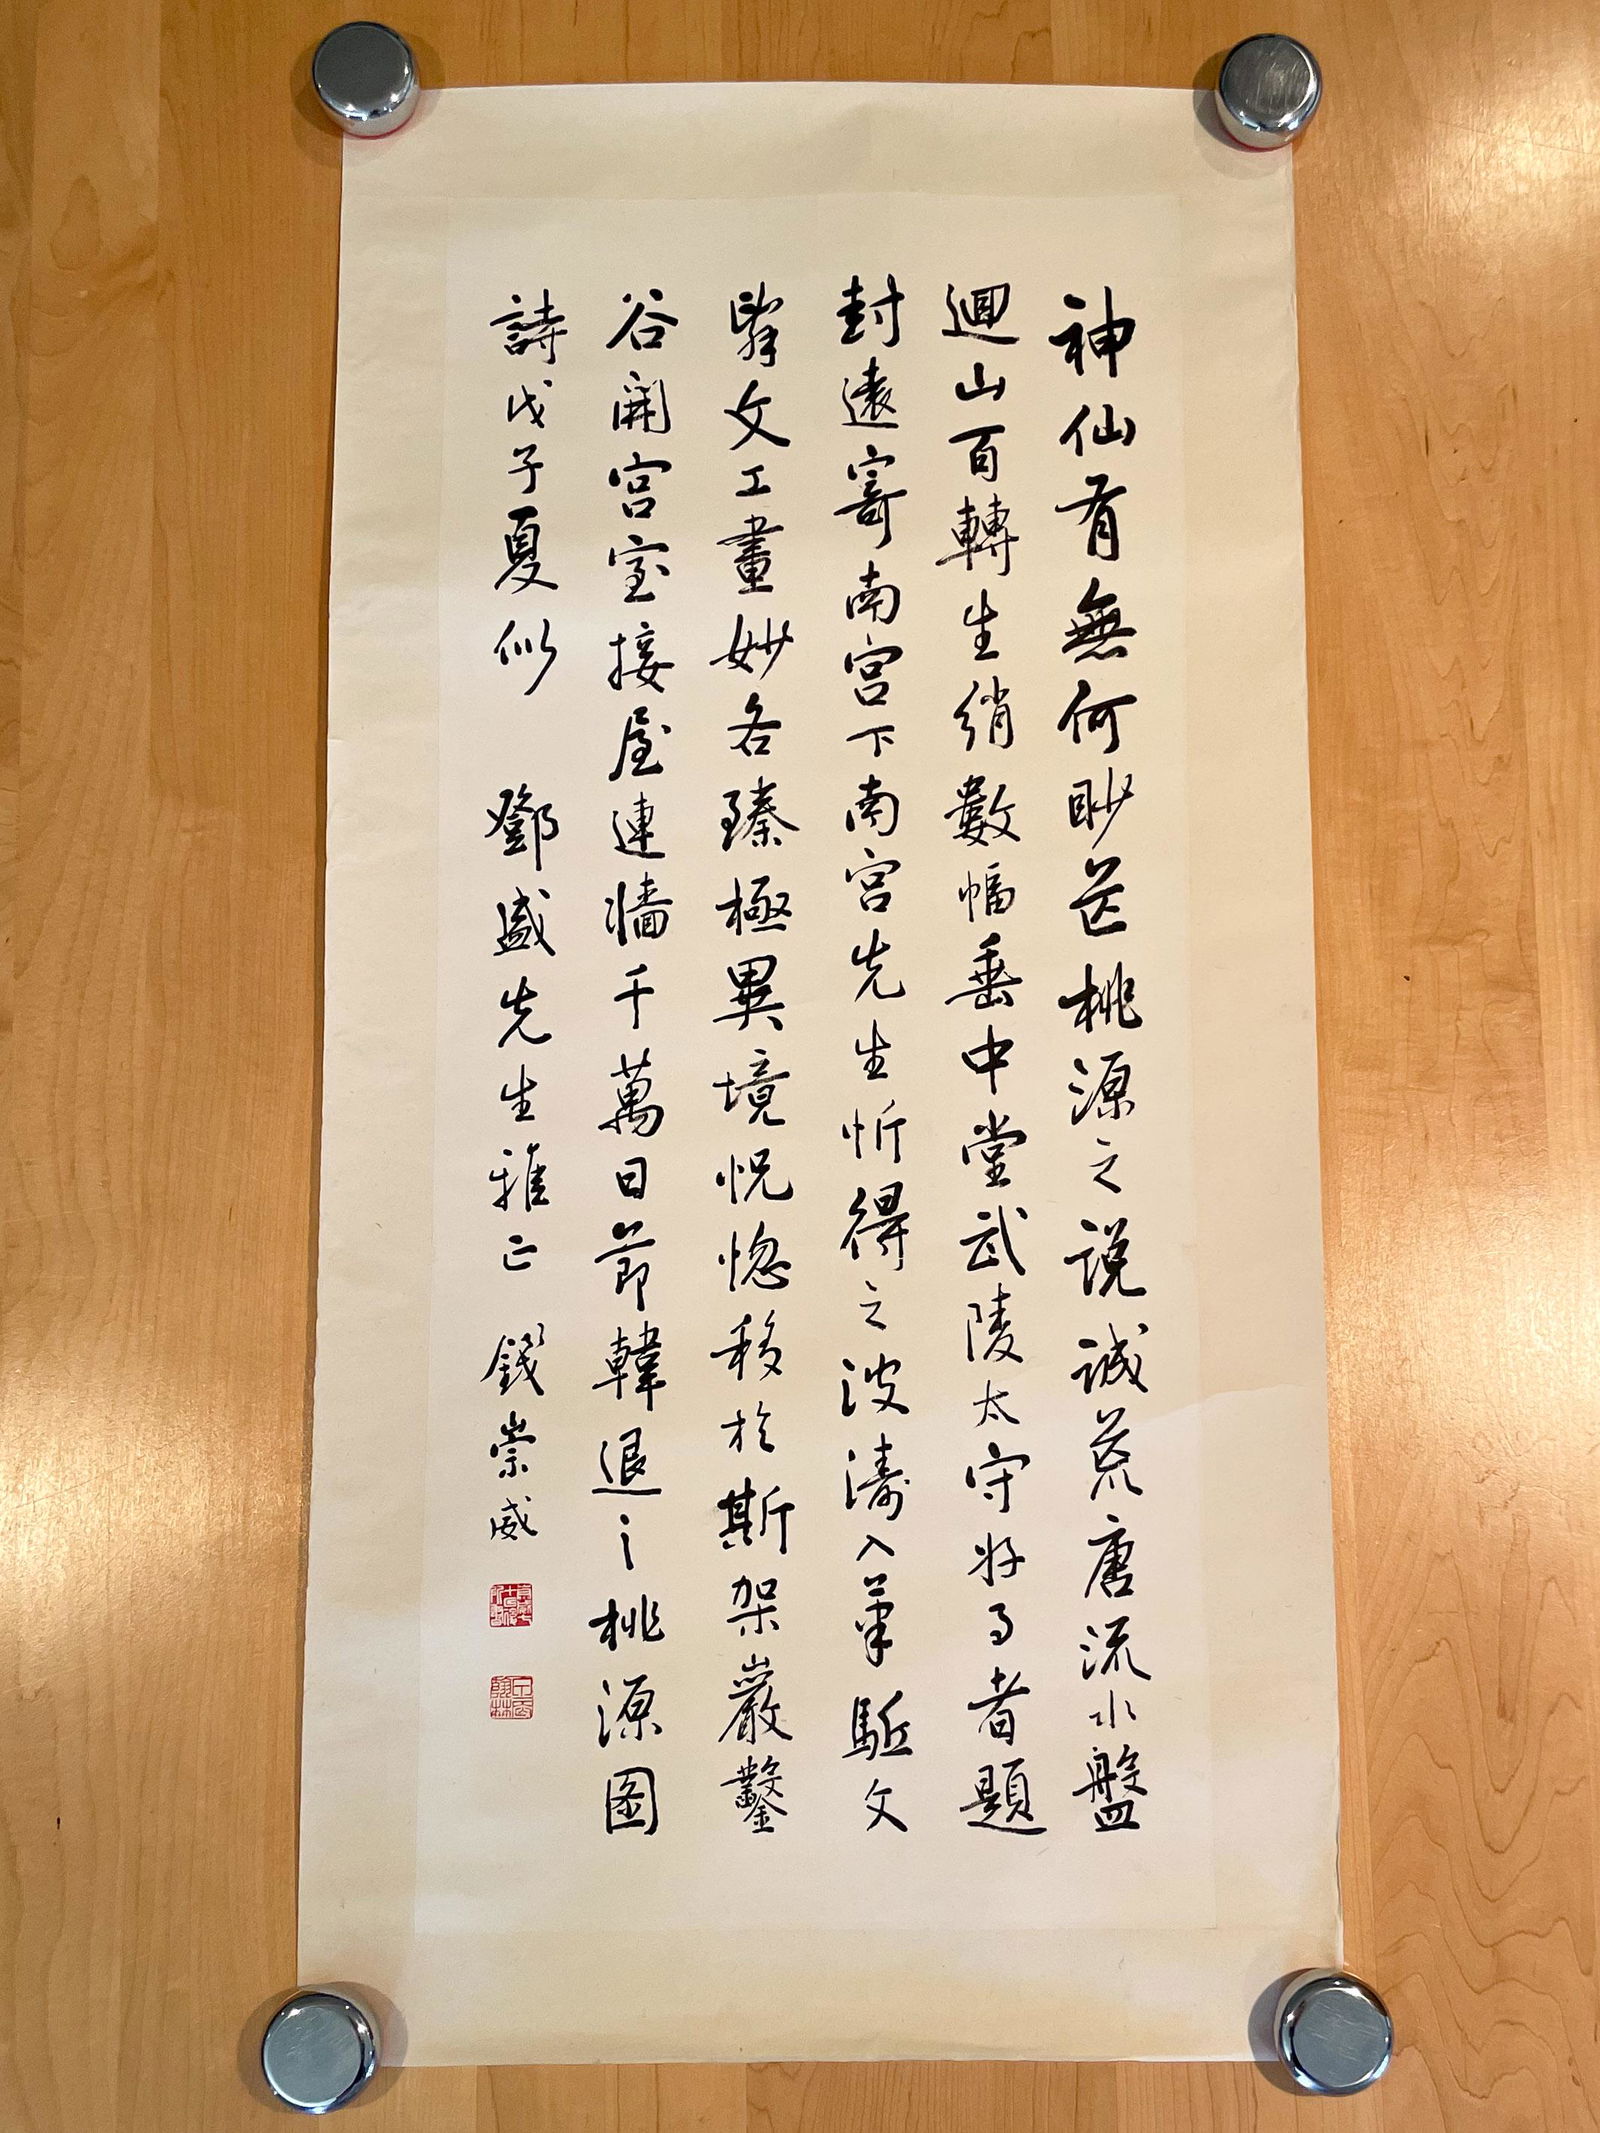 神仙有無何眇茫桃源之説誠荒唐流水盤
迴山百轉生綃數幅垂中堂武陵太守好事者題
封遠寄南宮下南宮先生忻得之波濤入筆駈文
辤文工畫妙各臻極異境怳惚移於斯架巖鑿
谷開宮室接屋連牆千萬日節韓退之桃源圖
詩戊子夏似 鄧盛先生雅正 錢崇威